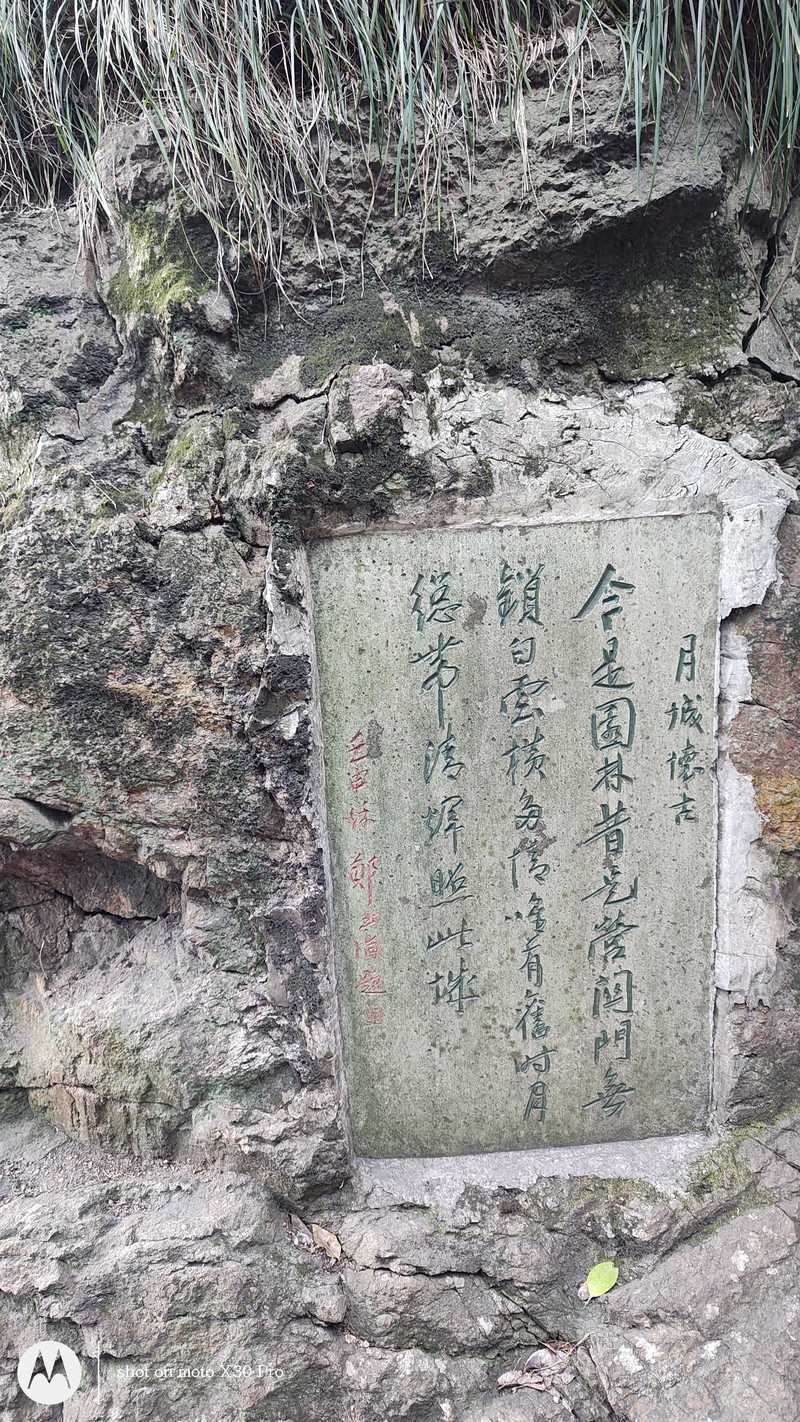 月城懷古
今是園林昔是營關門無
鎖白雲橫多情唯有舊時月
總帶清輝照此城
壬申秋鄭公海題
shot on moto X30 Pro